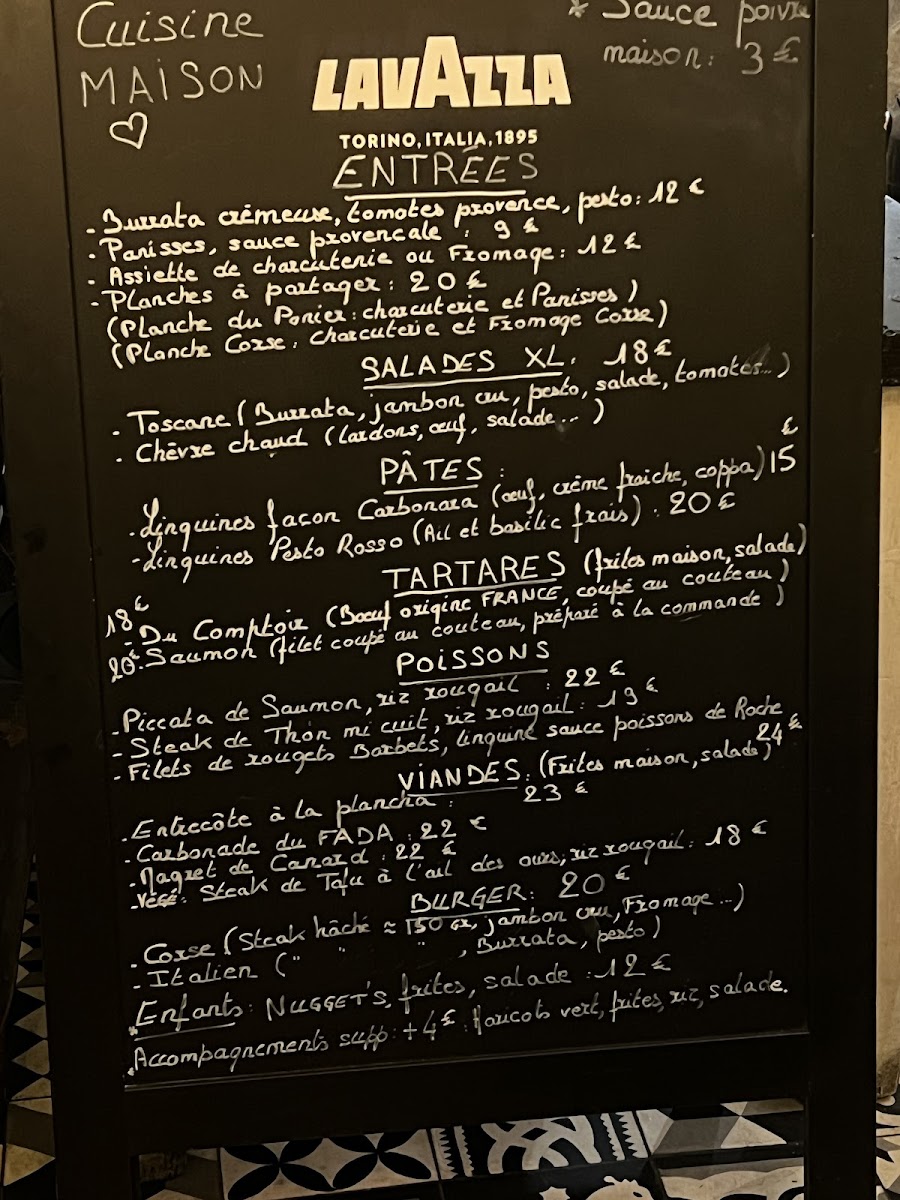 Cuisine
MAISON
* Sauce poivre
maison: 3€
LAVAZZA
TORINO, ITALIA, 1895
ENTRÉES
- Burrata crémeuse, tomates provence, pesto: 12 €
- Panisses, sauce provençale : 9 €
- Assiette de charcuterie ou Fromage: 12 €
- Planches à partager: 20 €
(Planche du Panier: charcuterie et Panisses)
(Planche Corse: charcuterie et Fromage Corse)
SALADES XL. 18€
- Toscane (Burrata, jambon cru, pesto, salade, tomates...)
- Chèvre chaud (lardons, œuf, salade... )
PÂTES :
- Linguines façon Carbonara (œuf, crème fraiche, coppa) 15 €
- Linguines Pesto Rosso (Ail et basilic frais) : 20€
TARTARES (frites maison, salade)
18€ - Du Comptoir (Bœuf origine FRANCE, coupé au couteau)
20€ - Saumon (filet coupé au couteau, préparé à la commande )
POISSONS
- Piccata de Saumon, riz rougail : 22 €
- Steak de Thon mi cuit, riz rougail: 19 €
- Filets de rougets Barbets, linguine sauce poissons de Roche 24€
VIANDES: (Frites maison, salade)
- Entrecôte à la plancha : 23 €
- Carbonade du FADA : 22 €
- Magret de Canard : 22 €
- Végé: Steak de Tofu à l'ail des ours, riz rougail: 18 €
BURGER: 20 €
- Corse (Steak hâché ≈ 150 gr, jambon cru, Fromage...)
- Italien (" " " , Burrata, pesto)
* Enfants: NUGGET'S, frites, salade : 12 €
* Accompagnements supp: +4€: Haricots vert, frites, riz, salade.